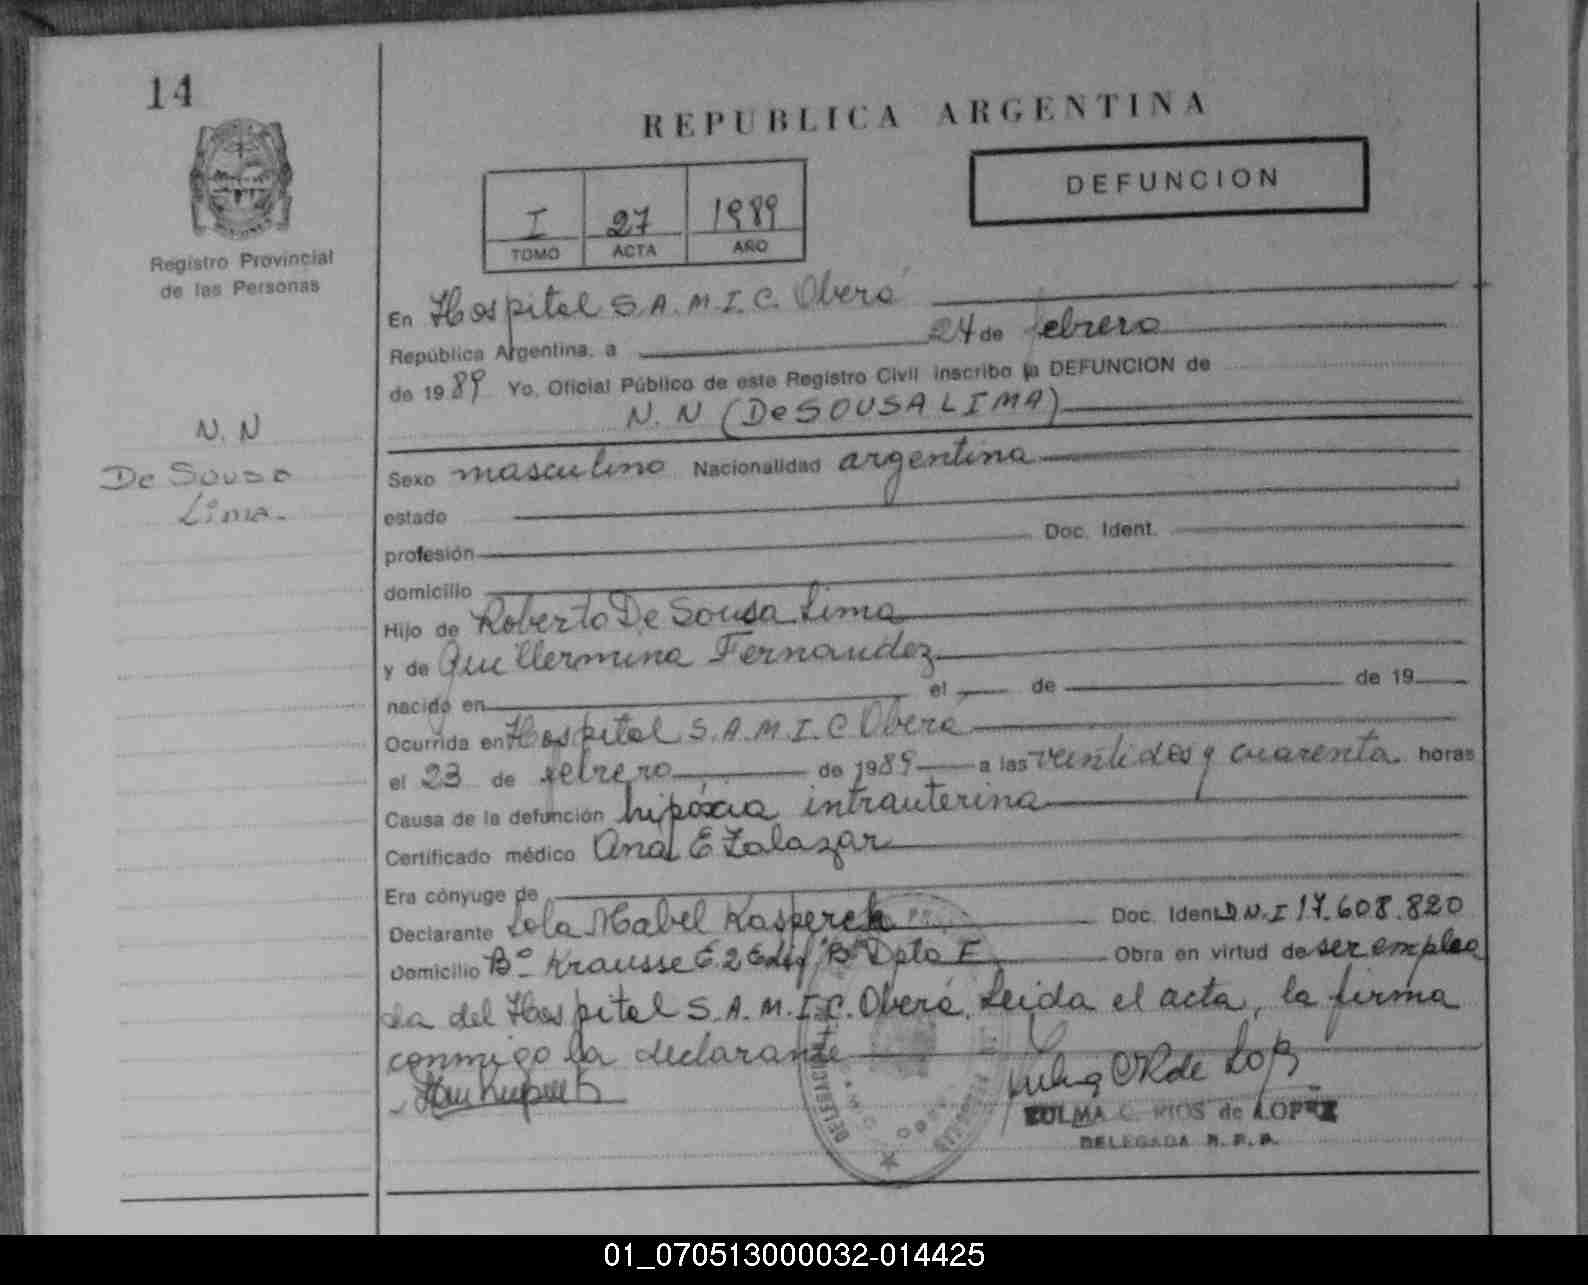 14
REPUBLICA ARGENTINA
Registro Provincial
de las Personas
I 27 1989
TOMO ACTA AÑO
DEFUNCION
N. N
De Sousa
Lima.
En Hospital S.A.M.I.C. Oberá
República Argentina, a 24 de febrero
de 1989 Yo, Oficial Público de este Registro Civil inscribo la DEFUNCION de
N. N (De SOUSA LIMA)
Sexo masculino Nacionalidad argentina
estado
profesión Doc. Ident.
domicilio
Hijo de Roberto De Sousa Lima
y de Guillermina Fernandez
nacido en el de de 19
Ocurrida en Hospital S.A.M.I.C Oberá
el 23 de febrero de 1989 a las veintidos y cuarenta horas
Causa de la defunción hipóxia intrauterina
Certificado médico Ana E Zalazar
Era cónyuge de
Declarante Lola Mabel Kasperek Doc. Ident D.N.I 17.608.820
Domicilio Bº Krausse E.2 Edif "B" Dpto E Obra en virtud de ser emplea
da del Hospital S.A.M.I.C. Oberá. Leida el acta, la firma
conmigo la declarante
ZULMA C. RIOS de LOPEZ
DELEGADA R. P. P.
01_070513000032-014425